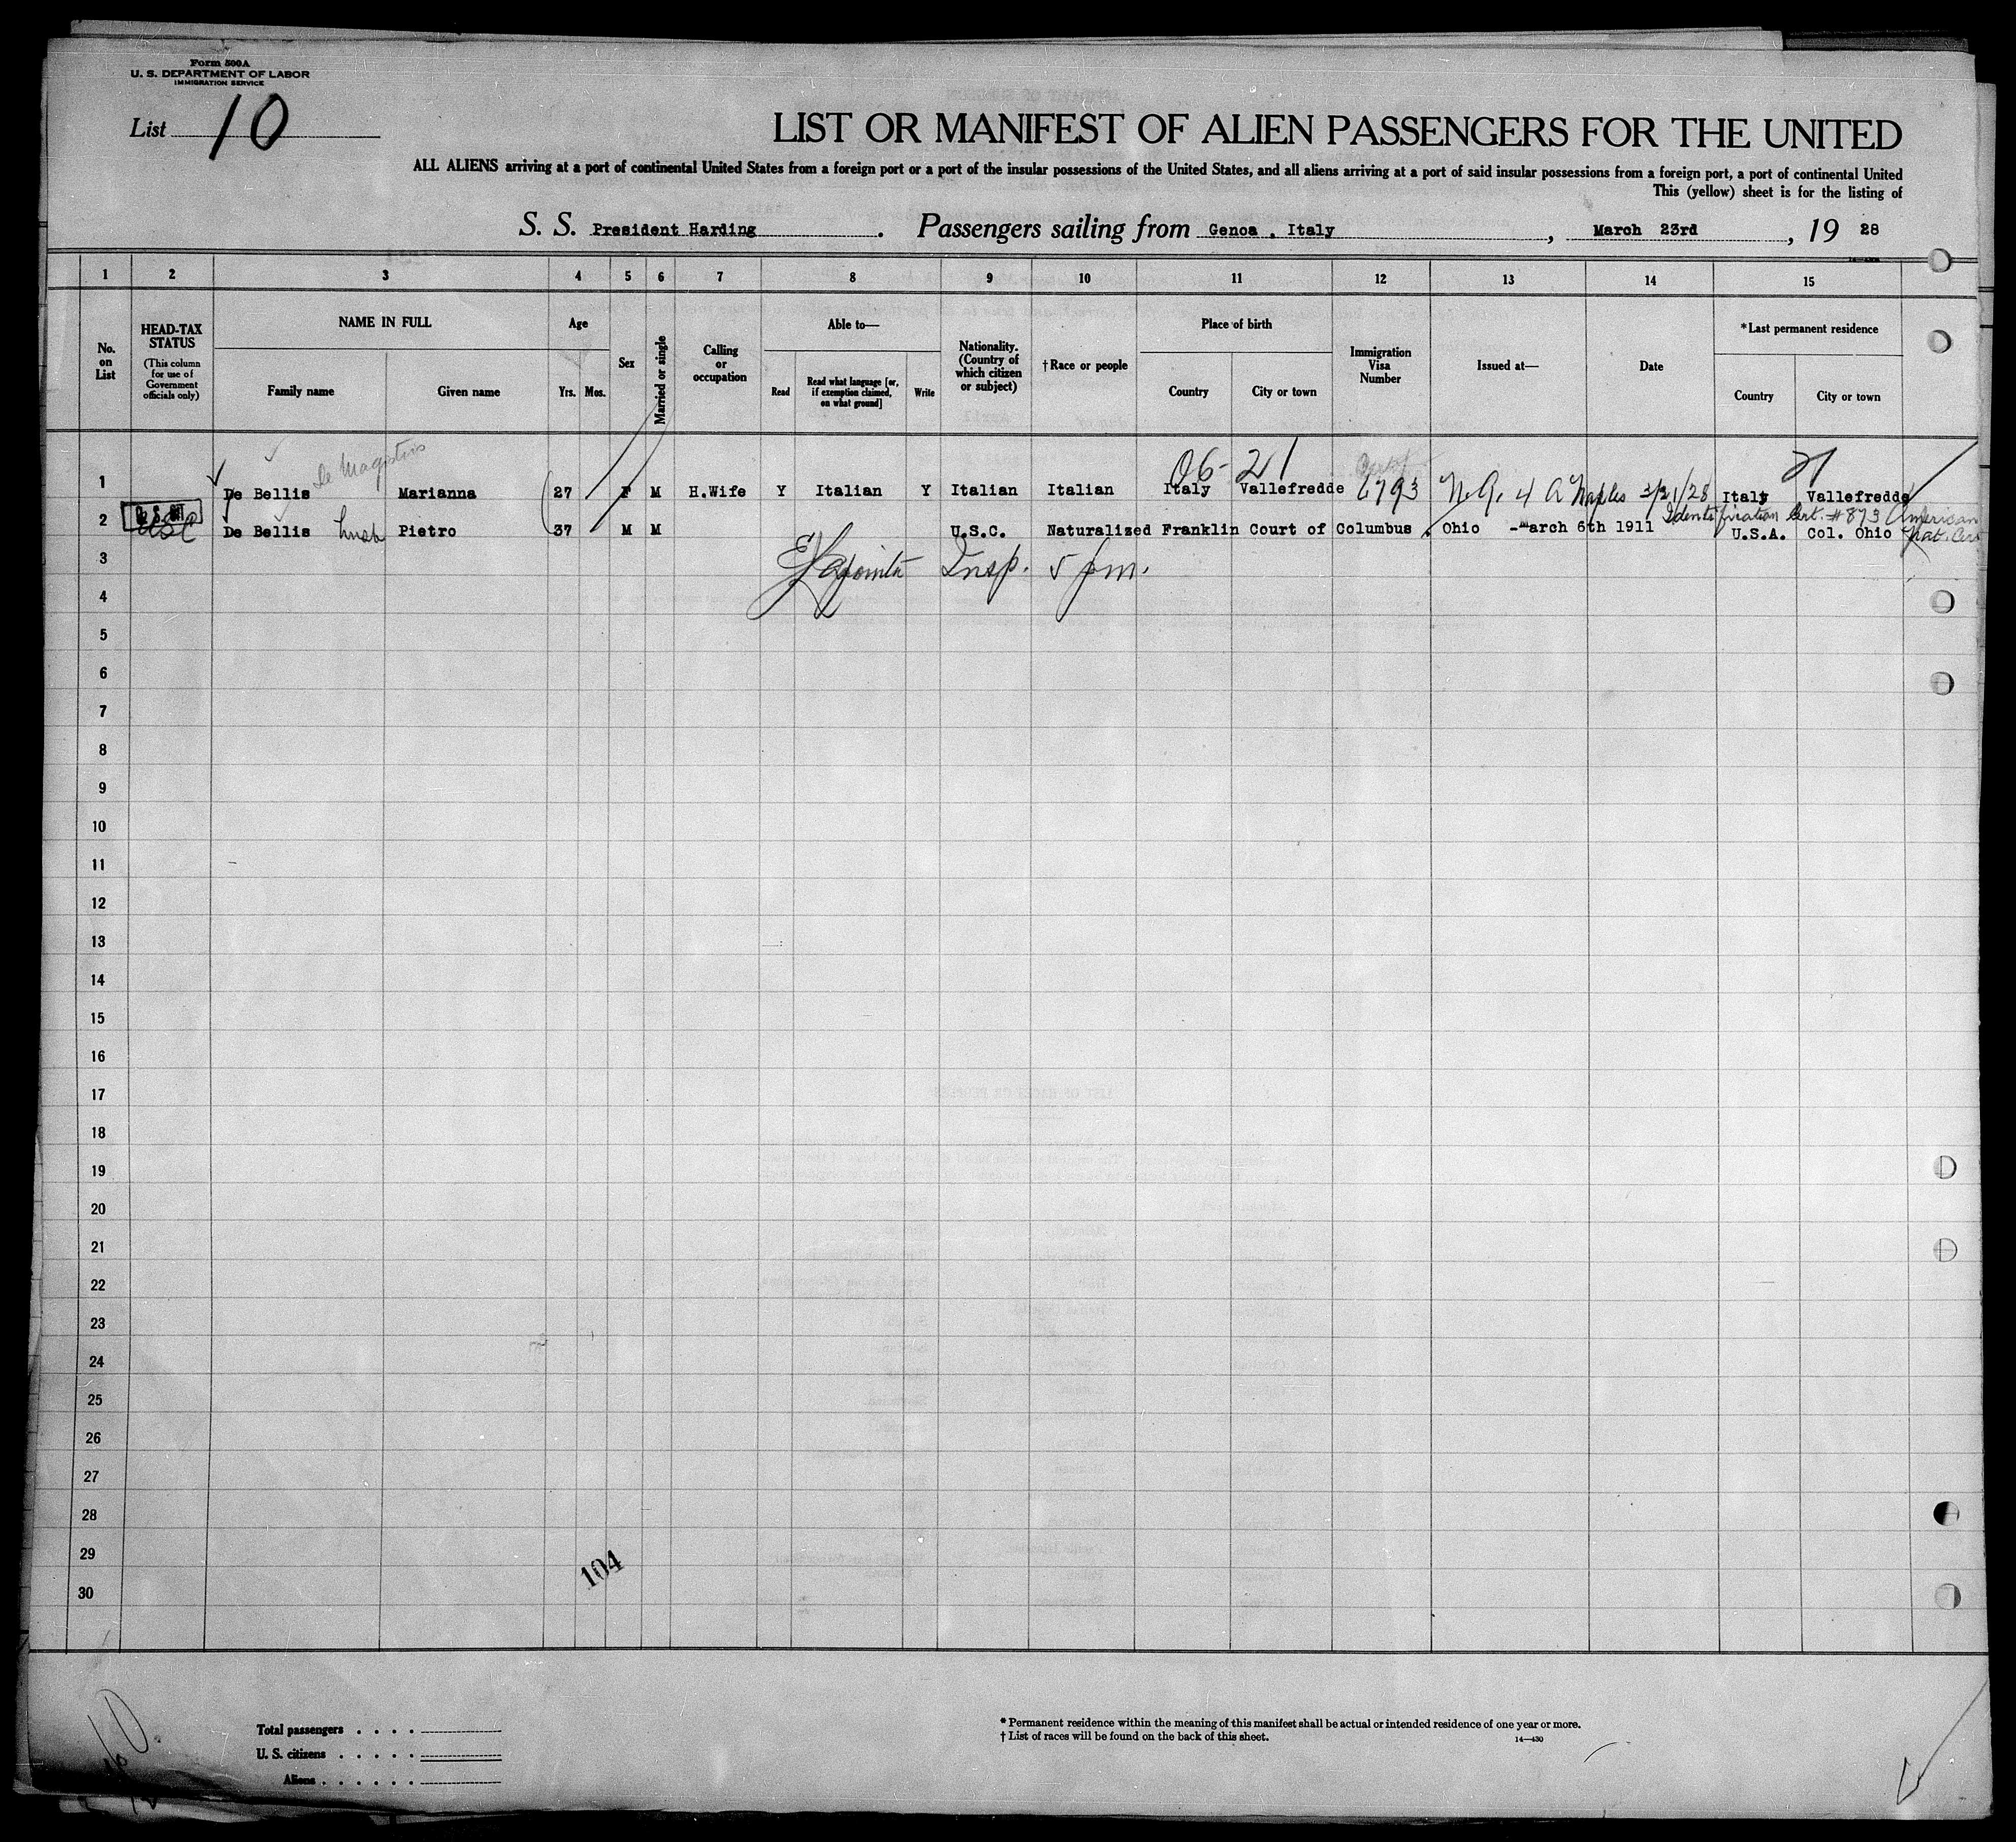 Form 500A
U. S. DEPARTMENT OF LABOR
IMMIGRATION SERVICE
List 10
LIST OR MANIFEST OF ALIEN PASSENGERS FOR THE UNITED
ALL ALIENS arriving at a port of continental United States from a foreign port or a port of the insular possessions of the United States, and all aliens arriving at a port of said insular possessions from a foreign port, a port of continental United
This (yellow) sheet is for the listing of
S. S. President Harding . Passengers sailing from Genoa , Italy , March 23rd , 19 28
1 2 3 4 5 6 7 8 9 10 11 12 13 14 15
No. on List
HEAD-TAX STATUS
(This column for use of Government officials only)
NAME IN FULL
Family name
Given name
Age
Yrs. Mos.
Sex
Married or single
Calling or occupation
Able to—
Read
Read what language [or, if exemption claimed, on what ground]
Write
Nationality. (Country of which citizen or subject)
†Race or people
Place of birth
Country
City or town
Immigration Visa Number
Issued at—
Date
*Last permanent residence
Country
City or town
De Magistris
06-21
21
1 De Bellis Marianna 27 F M H.Wife Y Italian Y Italian Italian Italy Vallefredde 6793 N.Q. 4 A Naples 3/21/28 Italy Vallefredde
Identification Cert. #873 American
2 USC De Bellis husb Pietro 37 M M U.S.C. Naturalized Franklin Court of Columbus , Ohio -March 6th 1911 U.S.A. Col. Ohio Nat. Cer
3 Insp. 5 pm.
4
5
6
7
8
9
10
11
12
13
14
15
16
17
18
19
20
21
22
23
24
25
26
27
28
29
30
104
Total passengers . . . .
U. S. citizens . . . . .
Aliens . . . . . .
* Permanent residence within the meaning of this manifest shall be actual or intended residence of one year or more.
† List of races will be found on the back of this sheet.
14—430